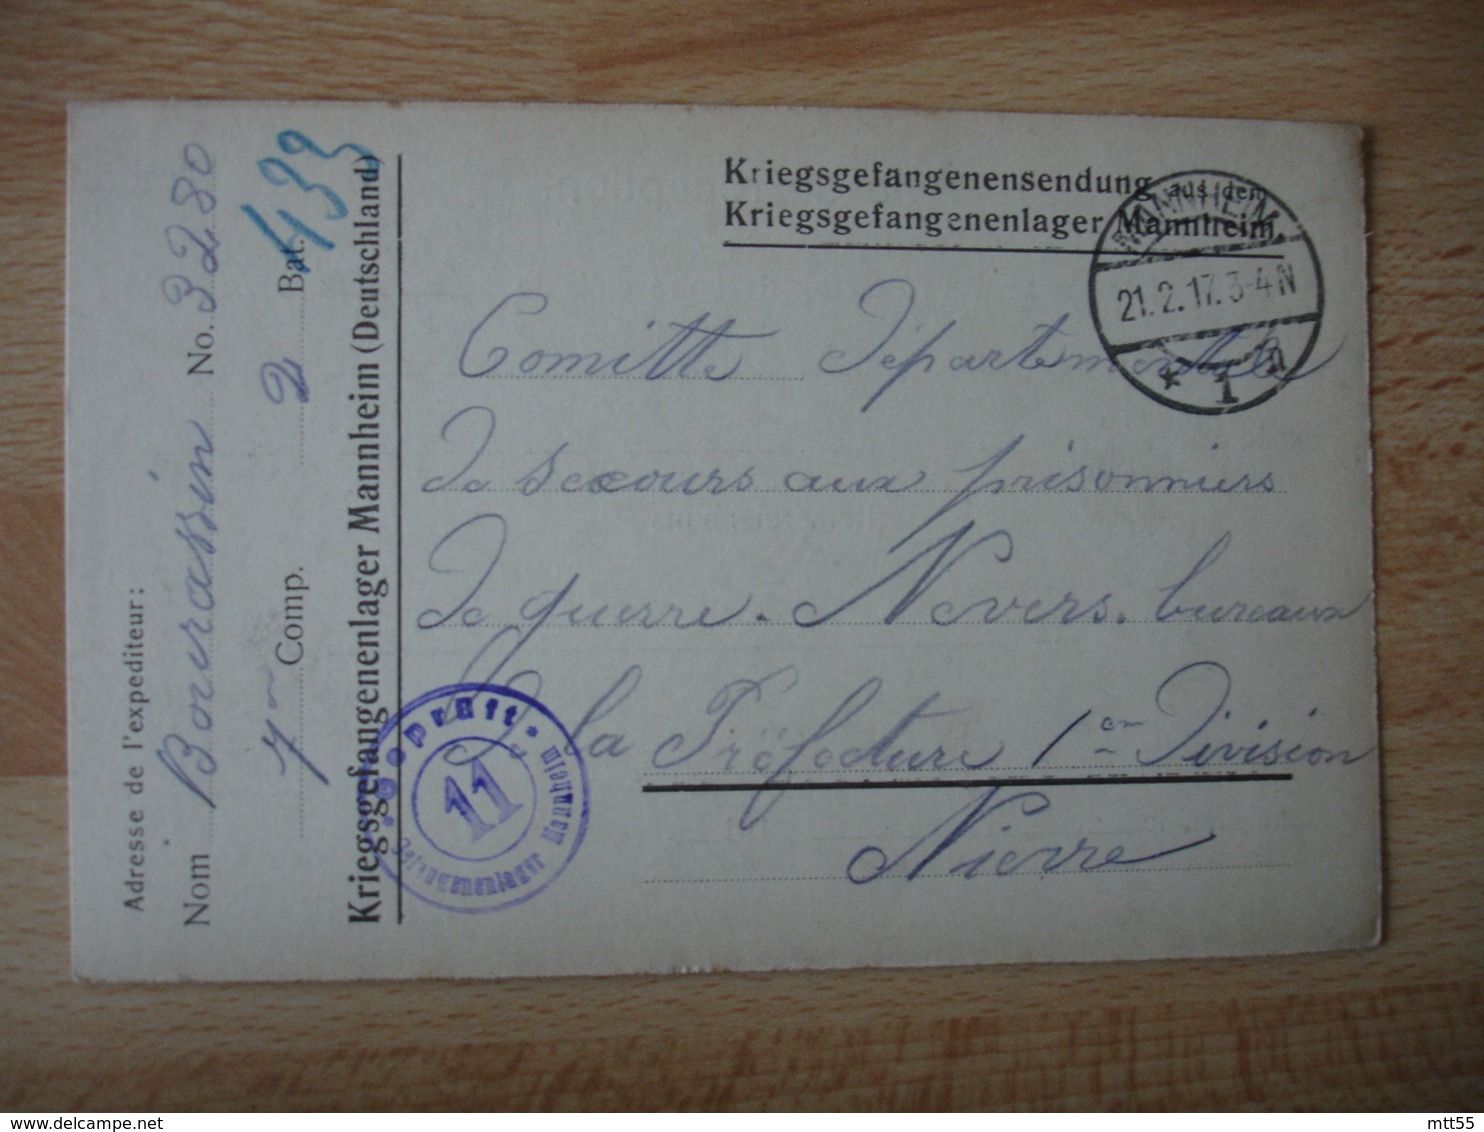 Kriegsgefangenensendung aus dem
Kriegsgefangenenlager Mannheim.
MANNHEIM
21.2.17.3-4N
* 1
Comitte Départementale
de secours aux prisonniers
de guerre. Nevers. bureaux
de la Préfecture 1em Division
Nièvre
Adresse de l'expéditeur:
Nom Bourassin No. 3280
7me Comp. 2 Bat.
433
Kriegsgefangenenlager Mannheim (Deutschland)
Geprüft
11
Gefangenenlager Mannheim
delcampe.net
mtt55